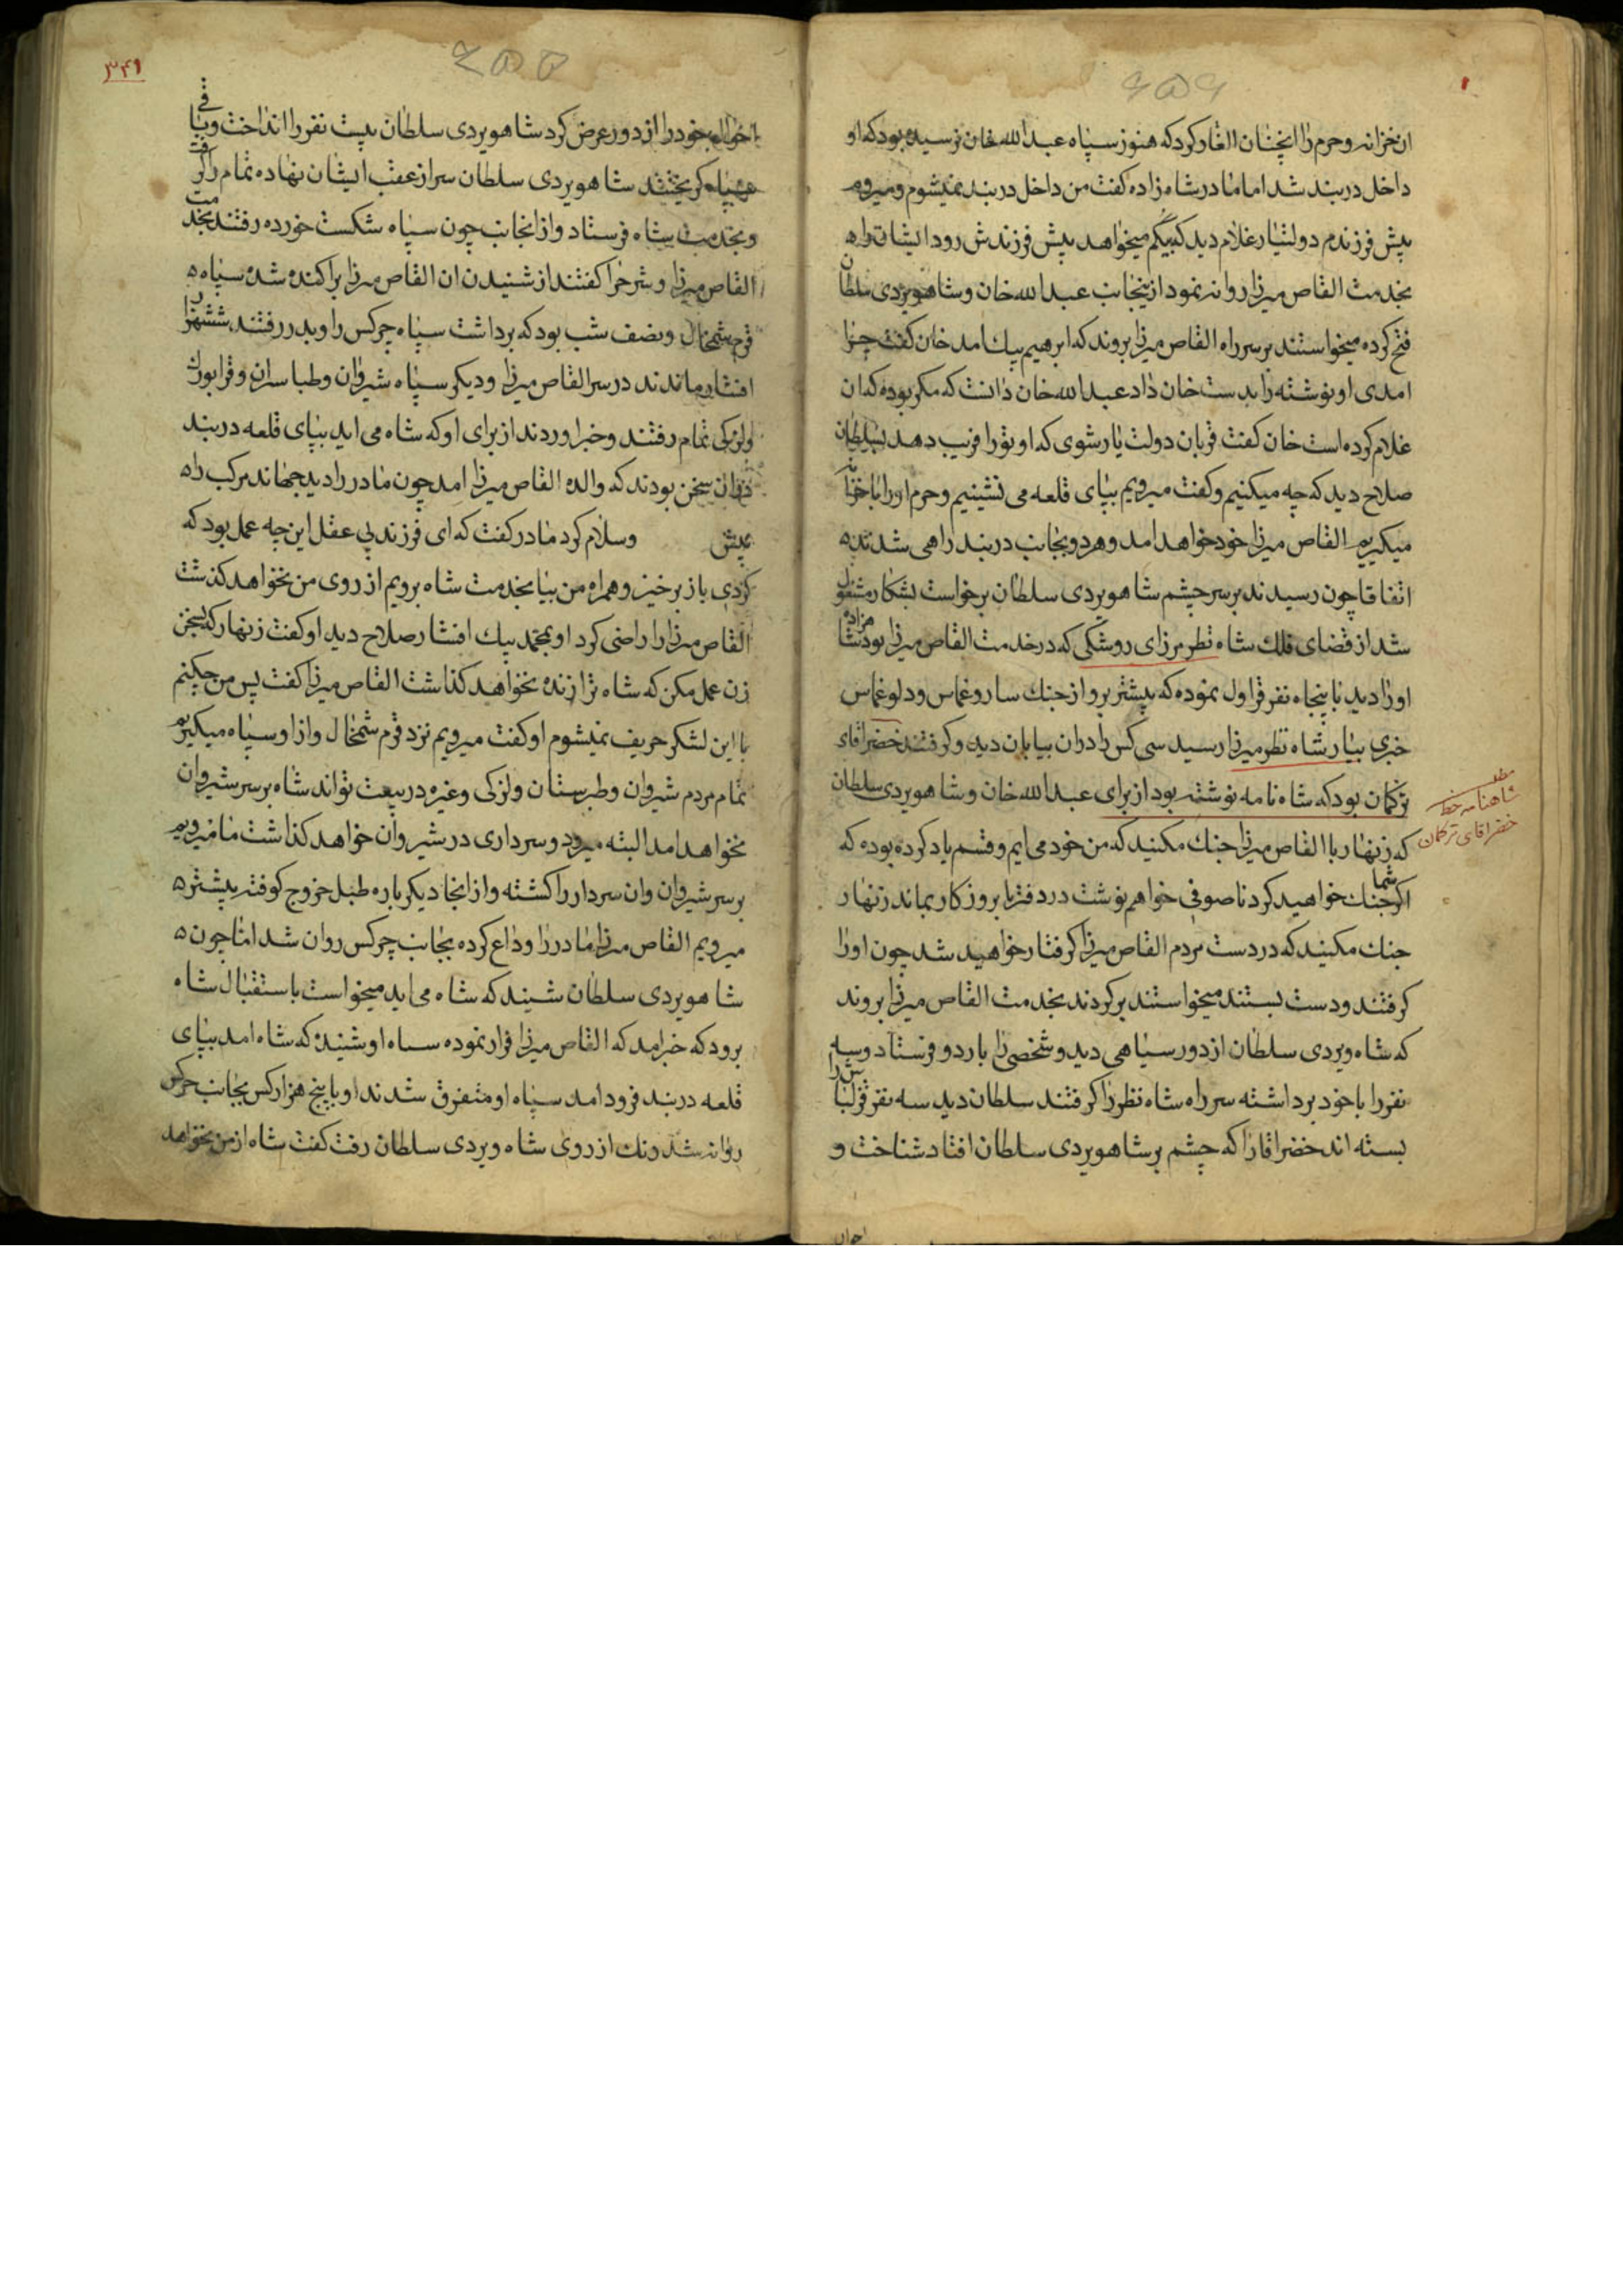 ان خزانه و حرم را انچنان الغار کرد که هنوز سپاه عبدالله خان نرسیده بود که او
داخل دربند شد اما مادر شاه زاده کفت من داخل دربند نمیشوم و میروم
پیش فرزندم دولتیار غلام دید که بیکم میخواهد پیش فرزندش رود ایشان را
بخدمت القاص میرزا روانه نمود از ینجانب عبدالله خان و شاهویردی سلطان
فتح کرده میخواستند بر سر راه القاص میرزا بروند که ابرهیم بیک امد خان کفت چرا
امدی او نوشته را بدست خان داد عبدالله خان دانست که مکر بوده که ان
غلام کرده است خان کفت قربان دولت یار شوی که او تو را فریب دهد بسلطان
صلاح دید که چه میکنیم و کفت میرویم بپای قلعه می نشینیم و حرم او را با خزانه
میکیریم القاص میرزا خود خواهد امد و هر دو بجانب دربند راهی شدند
اتفاقا چون رسیدند بر سر چشم شاهویردی سلطان برخواست بشکار مشغول
شد از قضای فلک شاه نظر مرزای روشکی که در خدمت القاص میرزا بود شاهزاده
او را دید با پنجاه نفر قراول نموده که پیشتر برو از جنک ساروغماس و دلوغماس
خبری بیار شاه نظر میرزا رسید سی کس را دران بیابان دید و کرفتند خضر اقای
ترکمان بود که شاه نامه نوشته بود از برای عبدالله خان و شاهویردی سلطان
که زنهار با القاص میرزا جنک مکنید که من خود می ایم و قسم یاد کرده بوده که
اکر شما جنک خواهید کرد ناصوفی خواهم نوشت در دفتر تا بروز کار بماند زنهار
جنک مکنید که در دست مردم القاص میرزا کرفتار خواهید شد چون او را
کرفتند و دست بستند میخواستند بر کردند بخدمت القاص میرزا بروند
که شاه ویردی سلطان از دور سیاهی دید و شخصی را باردو فرستاد و سه
نفر را با خود برداشته سر راه شاه نظر را کرفتند سلطان دید سه نفر قزلباش را
بسته اند خضر اقا را که چشم بر شاهویردی سلطان افتاد شناخت و
شاهنامه خط
خضر اقای ترکمان
احوال
۳۴۱
احوال خود را از دور عرض کرد شاهویردی سلطان بیست نفر را انداخت و باقی
کریختند شاهویردی سلطان سر از عقب ایشان نهاده تمام را کرفت
و بخدمت شاه فرستاد و از انجانب چون سپاه شکست خورده رفتند بخدمت
القاص میرزا و شرح را کفتند از شنیدن ان القاص میرزا براکنده شد سپاه
قرم شمخال و نصف شب بود که برداشت سپاه چرکس را و بدر رفتند ششهزار
افشار ماندند در سر القاص میرزا و دیکر سپاه شیروان و طباسران و قرابورک
ولزکی تمام رفتند و خبر اوردند از برای او که شاه می اید بپای قلعه دربند
دران سخن بودند که والده القاص میرزا امد چون مادر را دید جهاند مرکب را
پیش و سلام کرد مادر کفت که ای فرزند بی عقل این چه عمل بود که
کردی باز برخیز و همراه من بیا بخدمت شاه برویم از روی من نخواهد کذشت
القاص میرزا را راضی کرد او بمحمد بیک افشار صلاح دید او کفت زنهار که بسخن
زن عمل مکن که شاه ترا زنده نخواهد کذاشت القاص میرزا کفت پس من چکنم
با این لشکر حریف نمیشوم او کفت میرویم نزد قرم شمخال و از او سپاه میکیریم
تمام مردم شیروان و طبرستان و لزکی و غیره در بیعت تواند شاه بر سر شیروان
نخواهد امد البته میرود و سرداری در شیروان خواهد کذاشت ما میرویم
بر سر شیروان و ان سردار را کشته و از انجا دیکر باره طبل خروج کوفته پیشتر
میرویم القاص میرزا مادر را وداع کرده بجانب چرکس روان شد اما چون
شاهویردی سلطان شنید که شاه می اید میخواست باستقبال شاه
برود که خبر امد که القاص میرزا فرار نموده سپاه او شنیده که شاه امد بپای
قلعه دربند فرود امد سپاه او متفرق شدند او با پنج هزار کس بجانب چرکس
روانه شد رنک از روی شاه ویردی سلطان رفت کفت شاه از من نخواهد